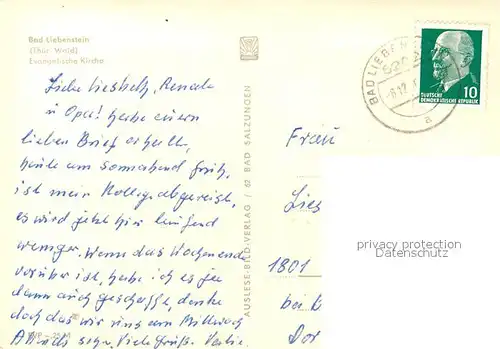 Bad Liebenstein
(Thür. Wald)
Evangelische Kirche
Liebe Liesbeth, Renate
u Opa! Habe euern
lieben Brief erhalten,
heute am Sonnabend früh,
ist mein Kollege abgereist,
es wird jetzt hier laufend
weniger. Wenn das Wochenend
vorüber ist, habe ich es ja
dann auch geschafft, denke
doch das wir uns am Mittwoch
Abends sehn. Viele Grüße
AUSLESE-BILD-VERLAG / 62 BAD SALZUNGEN
BAD LIEBEN
a
DEUTSCHE
DEMOKRATISCHE REPUBLIK
10
Frau
Lies
1801
bei
privacy protection
Datenschutz